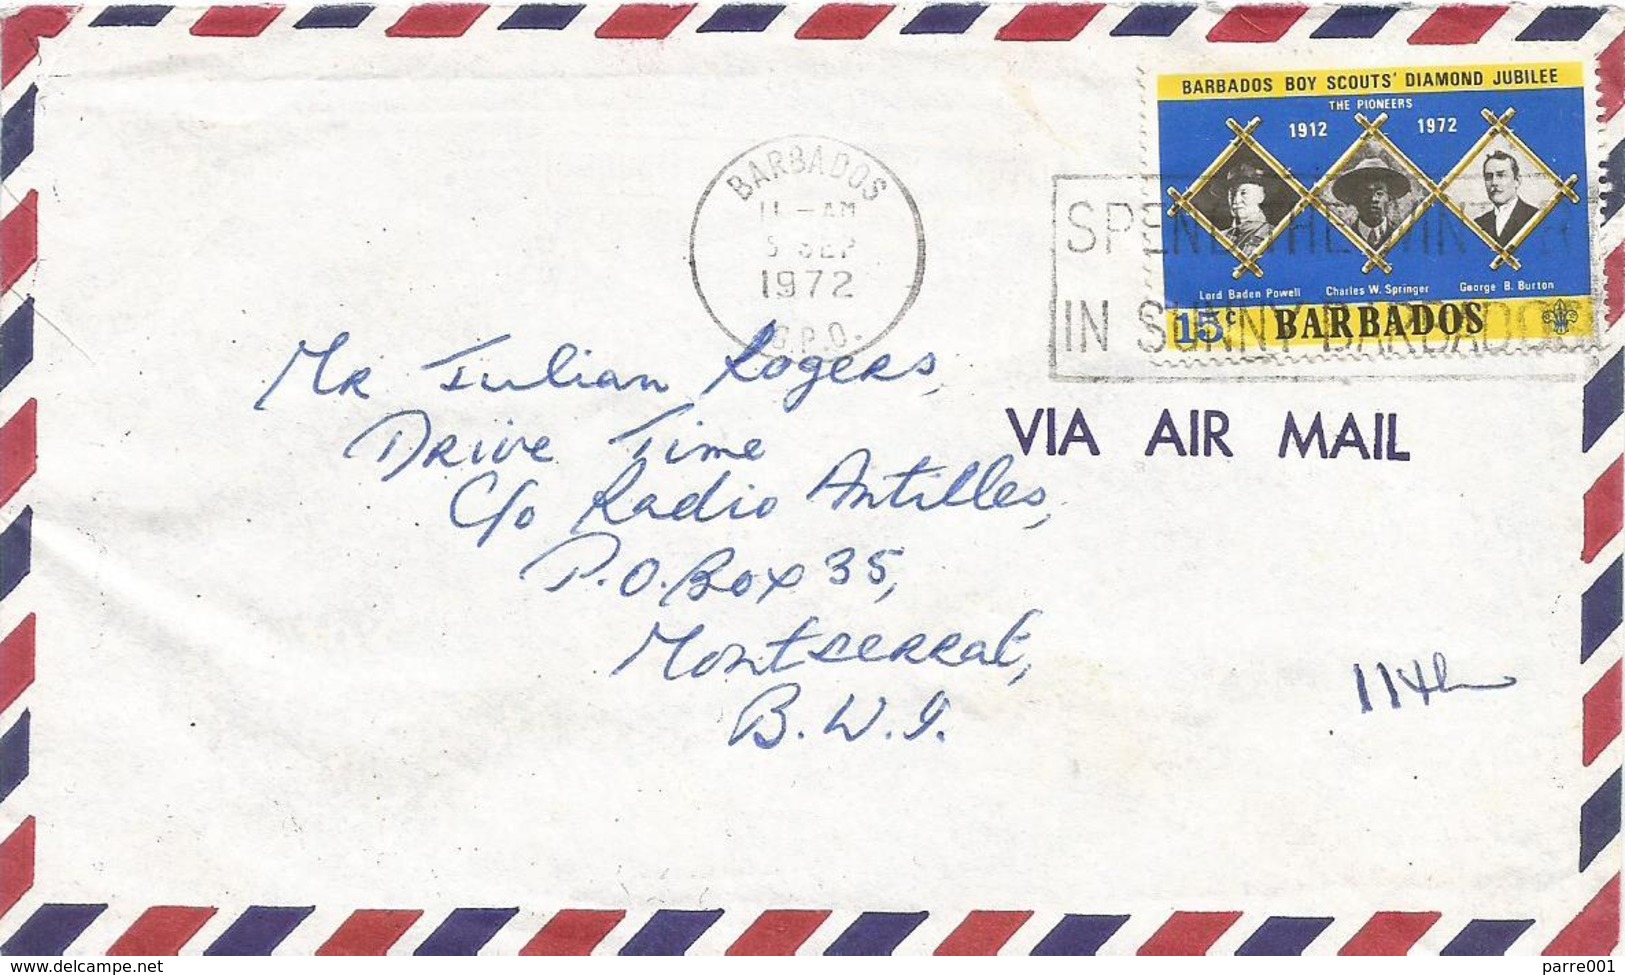 BARBADOS BOY SCOUTS' DIAMOND JUBILEE
THE PIONEERS
1912 1972
Lord Baden Powell Charles W. Springer George B. Burton
15c BARBADOS
BARBADOS
11-AM
5 SEP
1972
G.P.O.
SPEND THE WINTER
IN SUNNY BARBADOS
VIA AIR MAIL
Mr Julian Rogers,
Drive Time
C/o Radio Antilles,
P.O. Box 35,
Montserrat,
B.W.I.
11th
delcampe.net
parre001